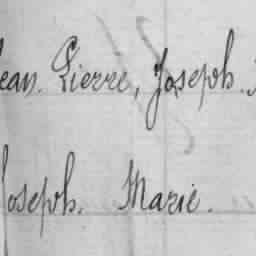 Jean. Pierre, Joseph.
Joseph. Marie.